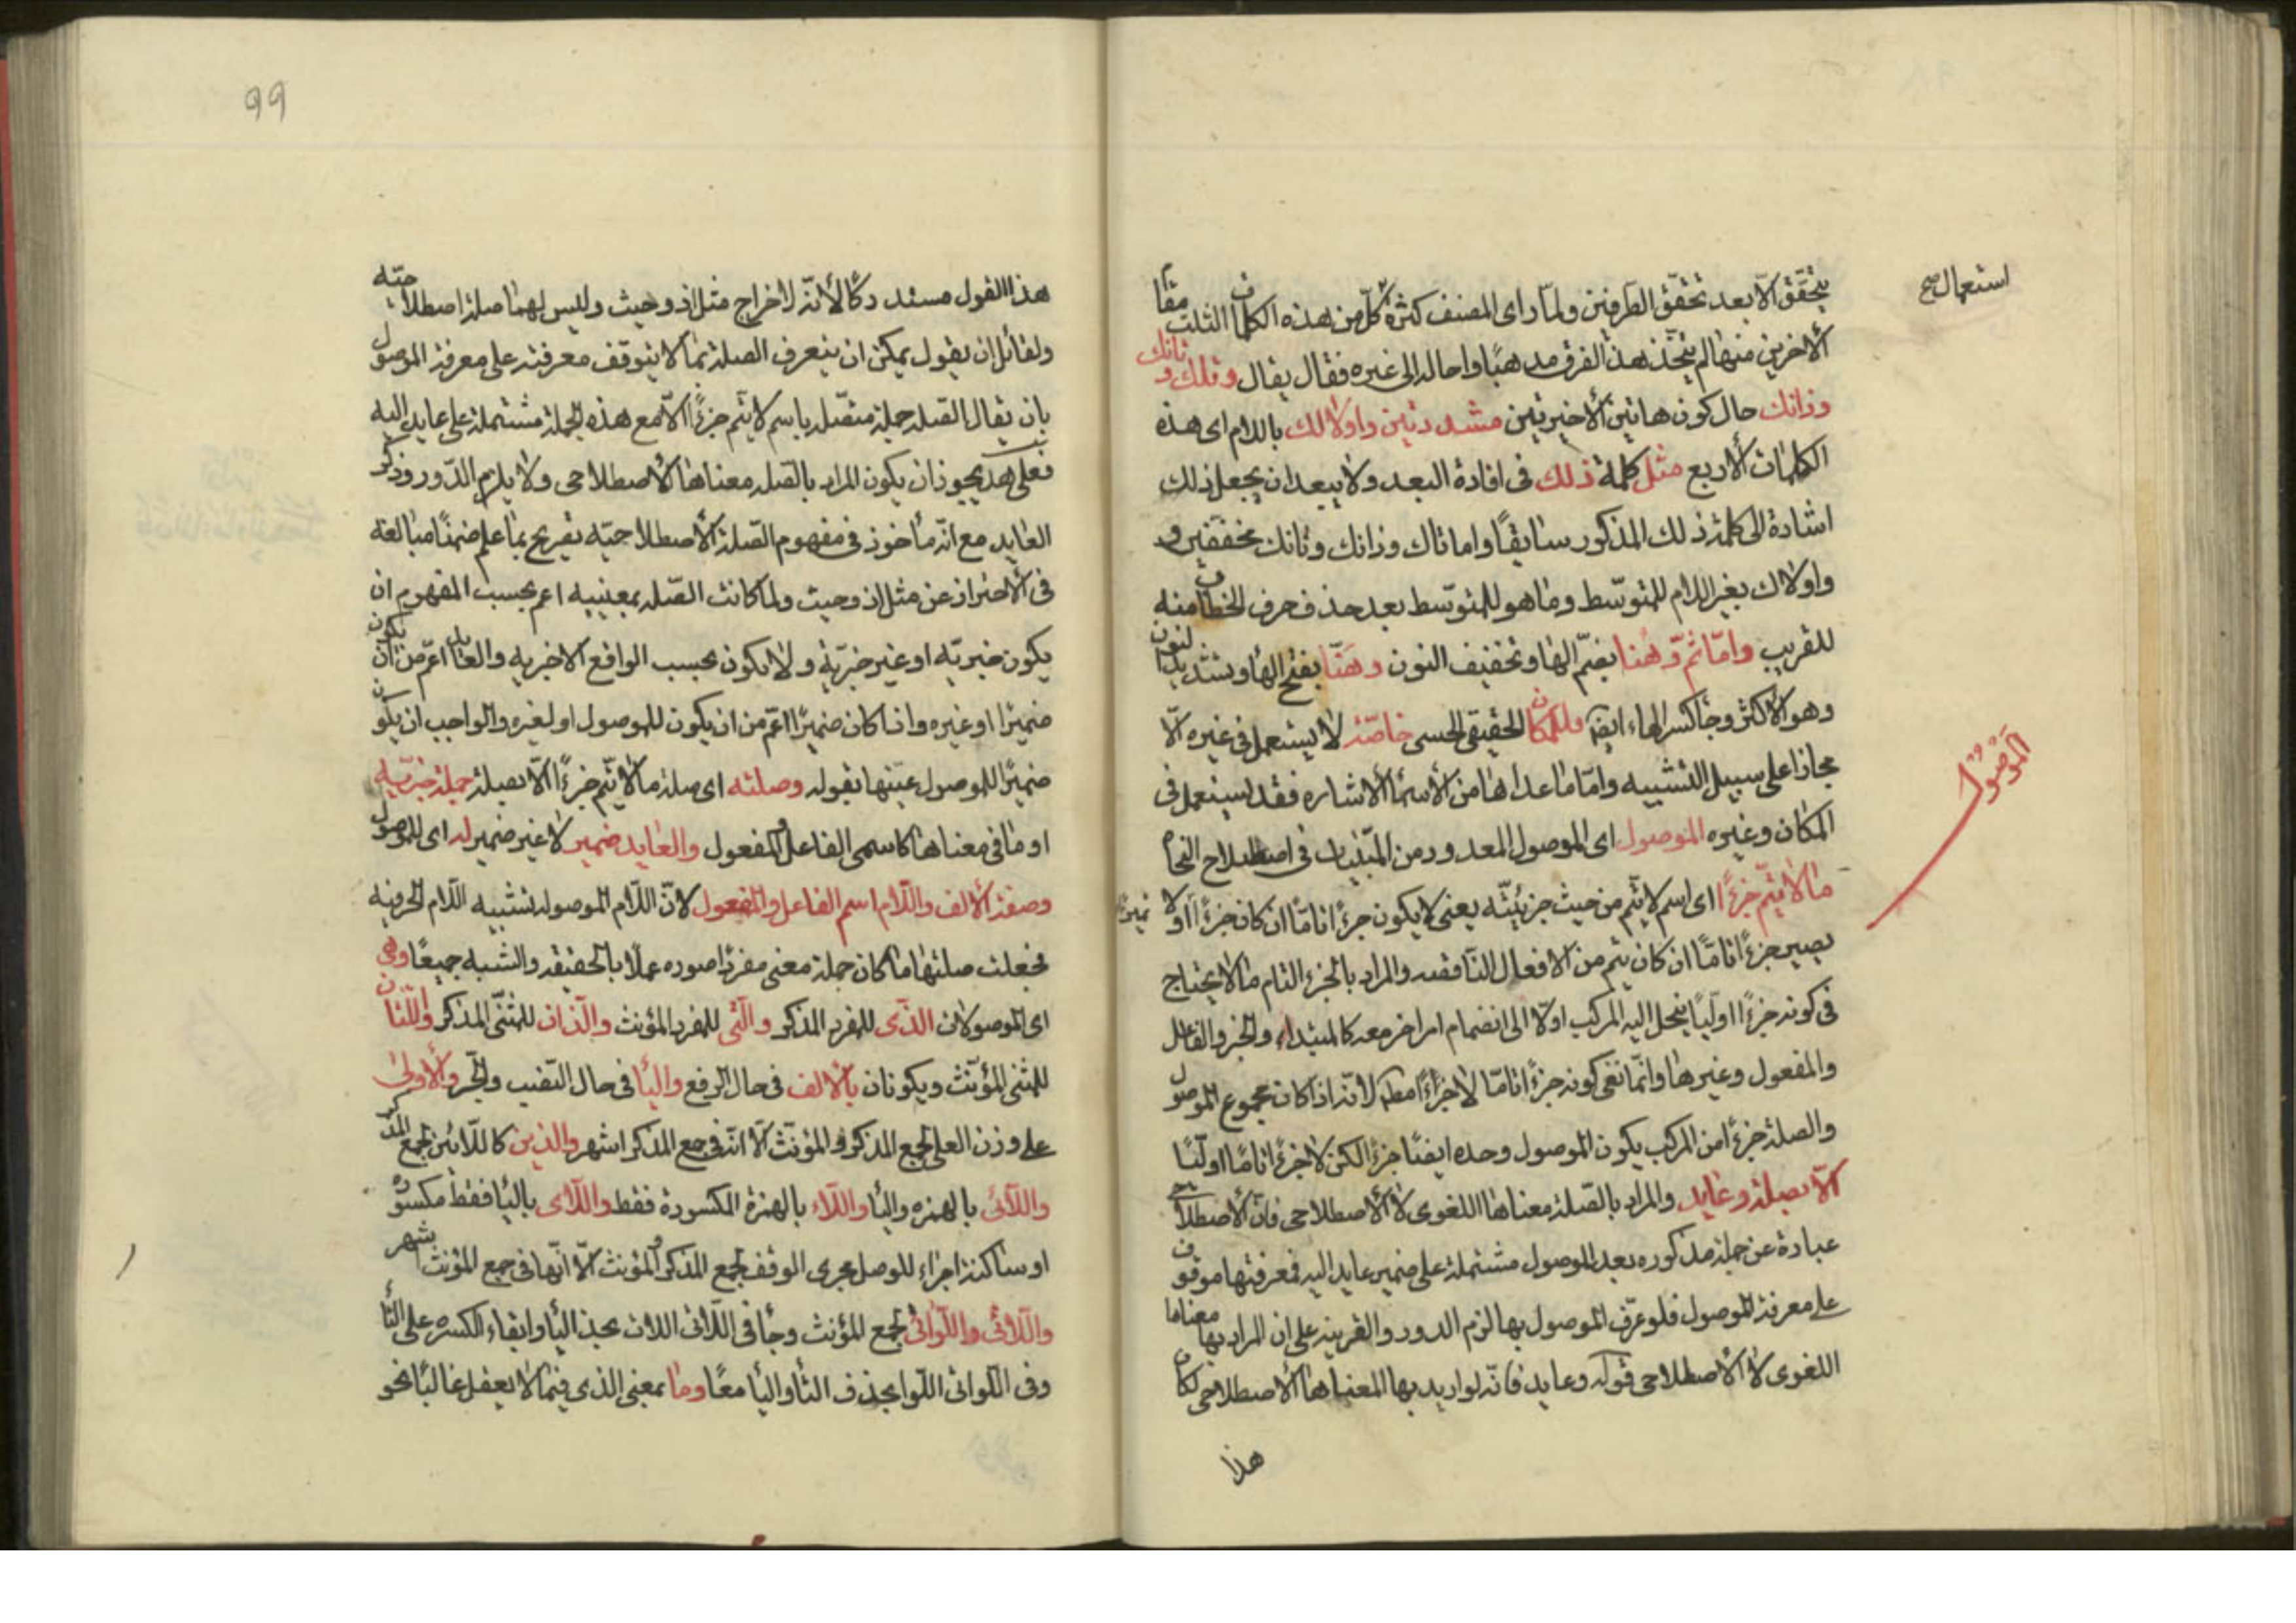 استعمال صح
يتحقق الا بعد تحقق الطرفين ولما راى المصنف كثرة كل من هذه الكلمات الثلث مقام
الاخريين منها لم يتخذ هذا الفرق مذهبا واحاله الى غيره فقال يقال وتلك وتانك
وذانك حال كون هاتين الاخيرتين مشددتين واولالك باللام اى هذه
الكلمات الاربع مثل كلمة ذلك فى افادة البعد ولا يبعد ان يجعل ذلك
اشارة الى كلمة ذلك المذكور سابقا واما تاك وذانك وتانك مخففتين و
واولاك بغير اللام للمتوسط وما هو للمتوسط بعد حذف حرف الخطاب منه
للقريب واما ثم وهنا بضم الها وتخفيف النون وهنا بفتح الها وتشديد النون
وهو الاكثر وجا كسر الهاء ايضا فللمكان الحقيقى الحسى خاصة لا يستعمل فى غيره الا
مجازا على سبيل التشبيه واما ما عداها من الاسما الاشاره فقد يستعمل فى
المكان وغيره الموصول اى الموصول المعدود من المبنيات فى اصطلاح النحاة
الموصول
ما لا يتم جزءا اى اسم لا يتم من حيث جزئيته يعنى لا يكون جزءا تاما ان كان جزءا او لا
يصير جزءا تاما ان كان يتم من الافعال الناقصه والمراد بالجزء التام ما لا يحتاج
فى كونه جزءا اوليا ينحل اليه المركب اولا الى انضمام امر اخر معه كالمبتداء والخبر والفاعل
والمفعول وغيرها وانما نفى كونه جزءا تاما لا جزءا مط لانه اذا كان مجموع الموصول
والصلة جزءا من المركب يكون الموصول وحده ايضا جزءا لكن لا جزءا تاما اوليا
الا بصلة وعايد والمراد بالصلة معناها اللغوى لا الاصطلاحى فان الاصطلاحيه
عبارة عن جملة مذكوره بعد الموصول مشتملة على ضمير عايد اليه فمعرفتها موقوف
على معرفة الموصول فلو عرف الموصول بها لزم الدور والقرينه على ان المراد بها معناها
اللغوى لا الاصطلاحى قوله وعايد فانه لو اريد بها المعناها الاصطلاحى لكان
هذا
٩٩
هذا القول مستدركا لانه لاخراج مثل اذ وحيث وليس لهما صلة اصطلاحيه
ولقائل ان يقول يمكن ان يتعرف الصلة بما لا يتوقف معرفته على معرفة الموصول
بان يقال الصله جملة متصلة باسم لا يتم جزءا الا مع هذه الجملة مشتملة على عايد اليه
فعلى هذا يجوز ان يكون المراد بالصله معناها الاصطلاحى ولا يلزم الدور وذكر
العايد مع انه مأخوذ فى مفهوم الصلة الاصطلاحيه تصريح بما علم ضمنا مبالغه
فى الاحتراز عن مثل اذ وحيث ولما كانت الصله بمعنييه اعم بحسب المفهوم ان
يكون خبريه او غير خبرية ولا يكون بحسب الواقع الا خبريه والعايد اعم من ان يكون
ضميرا او غيره واذا كان ضميرا اعم من ان يكون للموصول او لغيره والواجب ان يكون
ضميرا للموصول عينها بقوله وصلته اى صلة ما لا يتم جزءا الا بصلة جملة خبريه
او ما فى معناها كاسمى الفاعل والمفعول والعايد ضمير لا غير ضمير له اى للموصول
وصفة الالف واللام اسم الفاعل والمفعول لان اللام الموصولة تشبيه اللام الحرفيه
فجعلت صلتها ما كان جملة معنى مفردا صوره عملا بالحقيقه والشبه جميعا وهى
اى الموصولان الذى للمفرد المذكر والتى للمفرد المؤنث والذان للمثنى المذكر واللتان
للمثنى المؤنث ويكونان بالالف فى حال الرفع واليا فى حال النصب والجر والاولى
على وزن العلى لجمع المذكر والمؤنث الا انه فى جمع المذكر اشهر والذين كاللائين لجمع المذكر
واللائى بالهمزه واليا واللاء بالهمزة المكسورة فقط واللاى باليا فقط مكسوره
او ساكنة اجراء للوصل مجرى الوقف لجمع المذكر والمؤنث الا انها فى جمع المؤنث اشهر
واللاتى واللواتى لجمع المؤنث وجا فى اللاتى اللات بحذف اليا وابقاء الكسره على التا
وفى اللواتى اللوا بحذف التا واليا معا وما بمعنى الذى فيما لا يعقل غالبا نحو